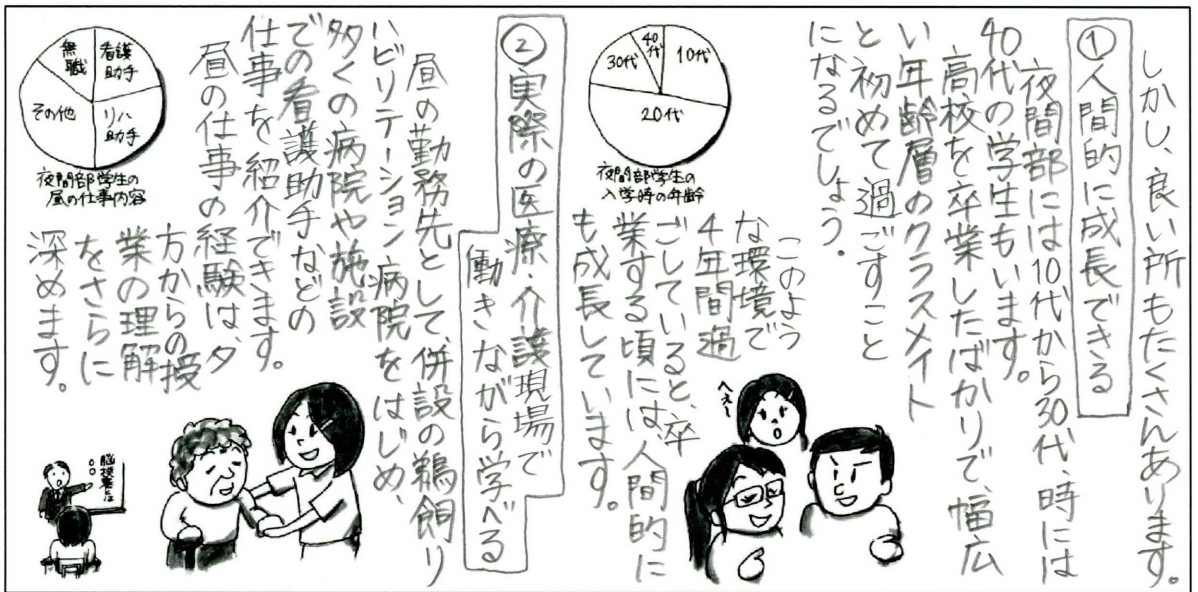 しかし、良い所もたくさんあります。
①人間的に成長できる
夜間部には10代から30代、時には
40代の学生もいます。
高校を卒業したばかりで、幅広
い年齢層のクラスメイト
と初めて過ごすこと
になるでしょう。
このよう
な環境で
4年間過
ごしていると、卒
業する頃には、人間的に
も成長しています。
10代
20代
30代
40代
夜間部学生の
入学時の年齢
へぇ〜
②実際の医療・介護現場で
働きながら学べる
昼の勤務先として、併設の鵜飼リ
ハビリテーション病院をはじめ、
多くの病院や施設
での看護助手などの
仕事を紹介できます。
昼の仕事の経験は、夕
方からの授
業の理解
をさらに
深めます。
看護
助手
リハ
助手
その他
無
職
夜間部学生の
昼の仕事内容
脳梗塞とは